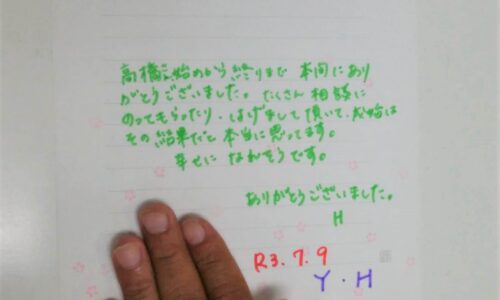 高橋さん始めから終りまで 本当にあり
がとうございました。たくさん 相談に
のってもらったり、はげまして頂いて、成婚は
その結果だと本当に思ってます。
幸せに なれそうです。
ありがとうございました。
H
R3.7.9
Y.H